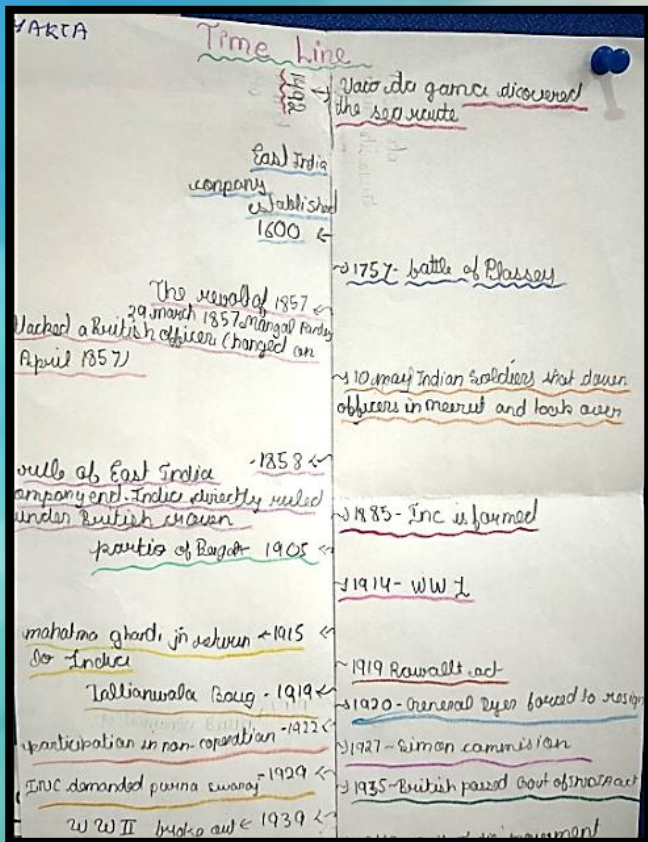 Time Line
1492
Vaco da gama dicovered
the sea route
East India
conpany
established
1600
1757- battle of Plassey
The revolt of 1857
29 march 1857 Mangal Pandey
a British officer (hanged on
April 1857)
10 may Indian Soldiers shot down
officers in meerut and took over
1858
rule of East India
ompany end. India directly ruled
under British crown
1885- Inc is formed
of 1905
1914- WW I
1915
to India
1919 Rowallt act
Jallianwala Baug - 1919
1920- General Dyer forced to resign
participation in non-coperation -1922
1927- Simon commision
INC demanded purna swaraj -1929
1935- British passed Govt of INDIA act
WW II broke out 1939